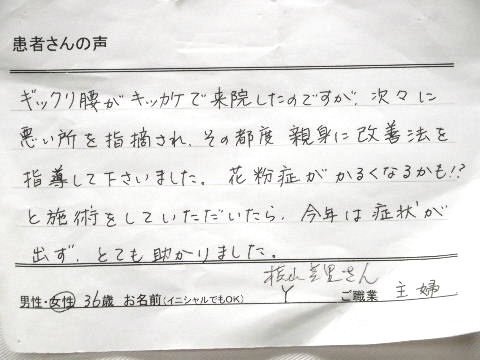 患者さんの声
ギックリ腰がキッカケで来院したのですが、次々に
悪い所を指摘され、その都度 親身に改善法を
指導して下さいました。花粉症がかるくなるかも!?
と施術をしていただいたら、今年は症状が
出ず、とても助かりました。
山 里さん
男性・女性 36歳 お名前(イニシャルでもOK) Y ご職業 主婦